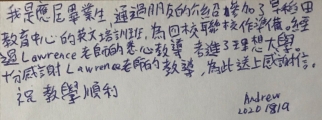 我是應屆畢業生 通過朋友的介紹參加了
教育中心的英文培訓班,為四校聯核作準備,經
過Lawrence老師的悉心教導 考進了理想大學。
十分感謝Lawrence老師的教導,為此送上感謝信。
祝 教學順利
Andrew